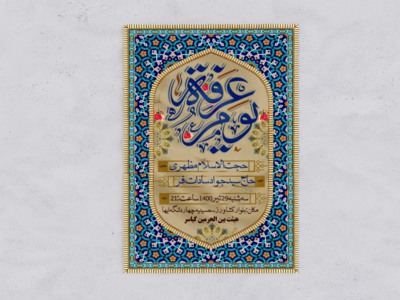 یوم عرفه
حجت الاسلام مظهری
حاج سید جواد سادات فر
سه شنبه 29 تیر 1400 ساعت: 21
هیئت بین الحرمین گیاسر